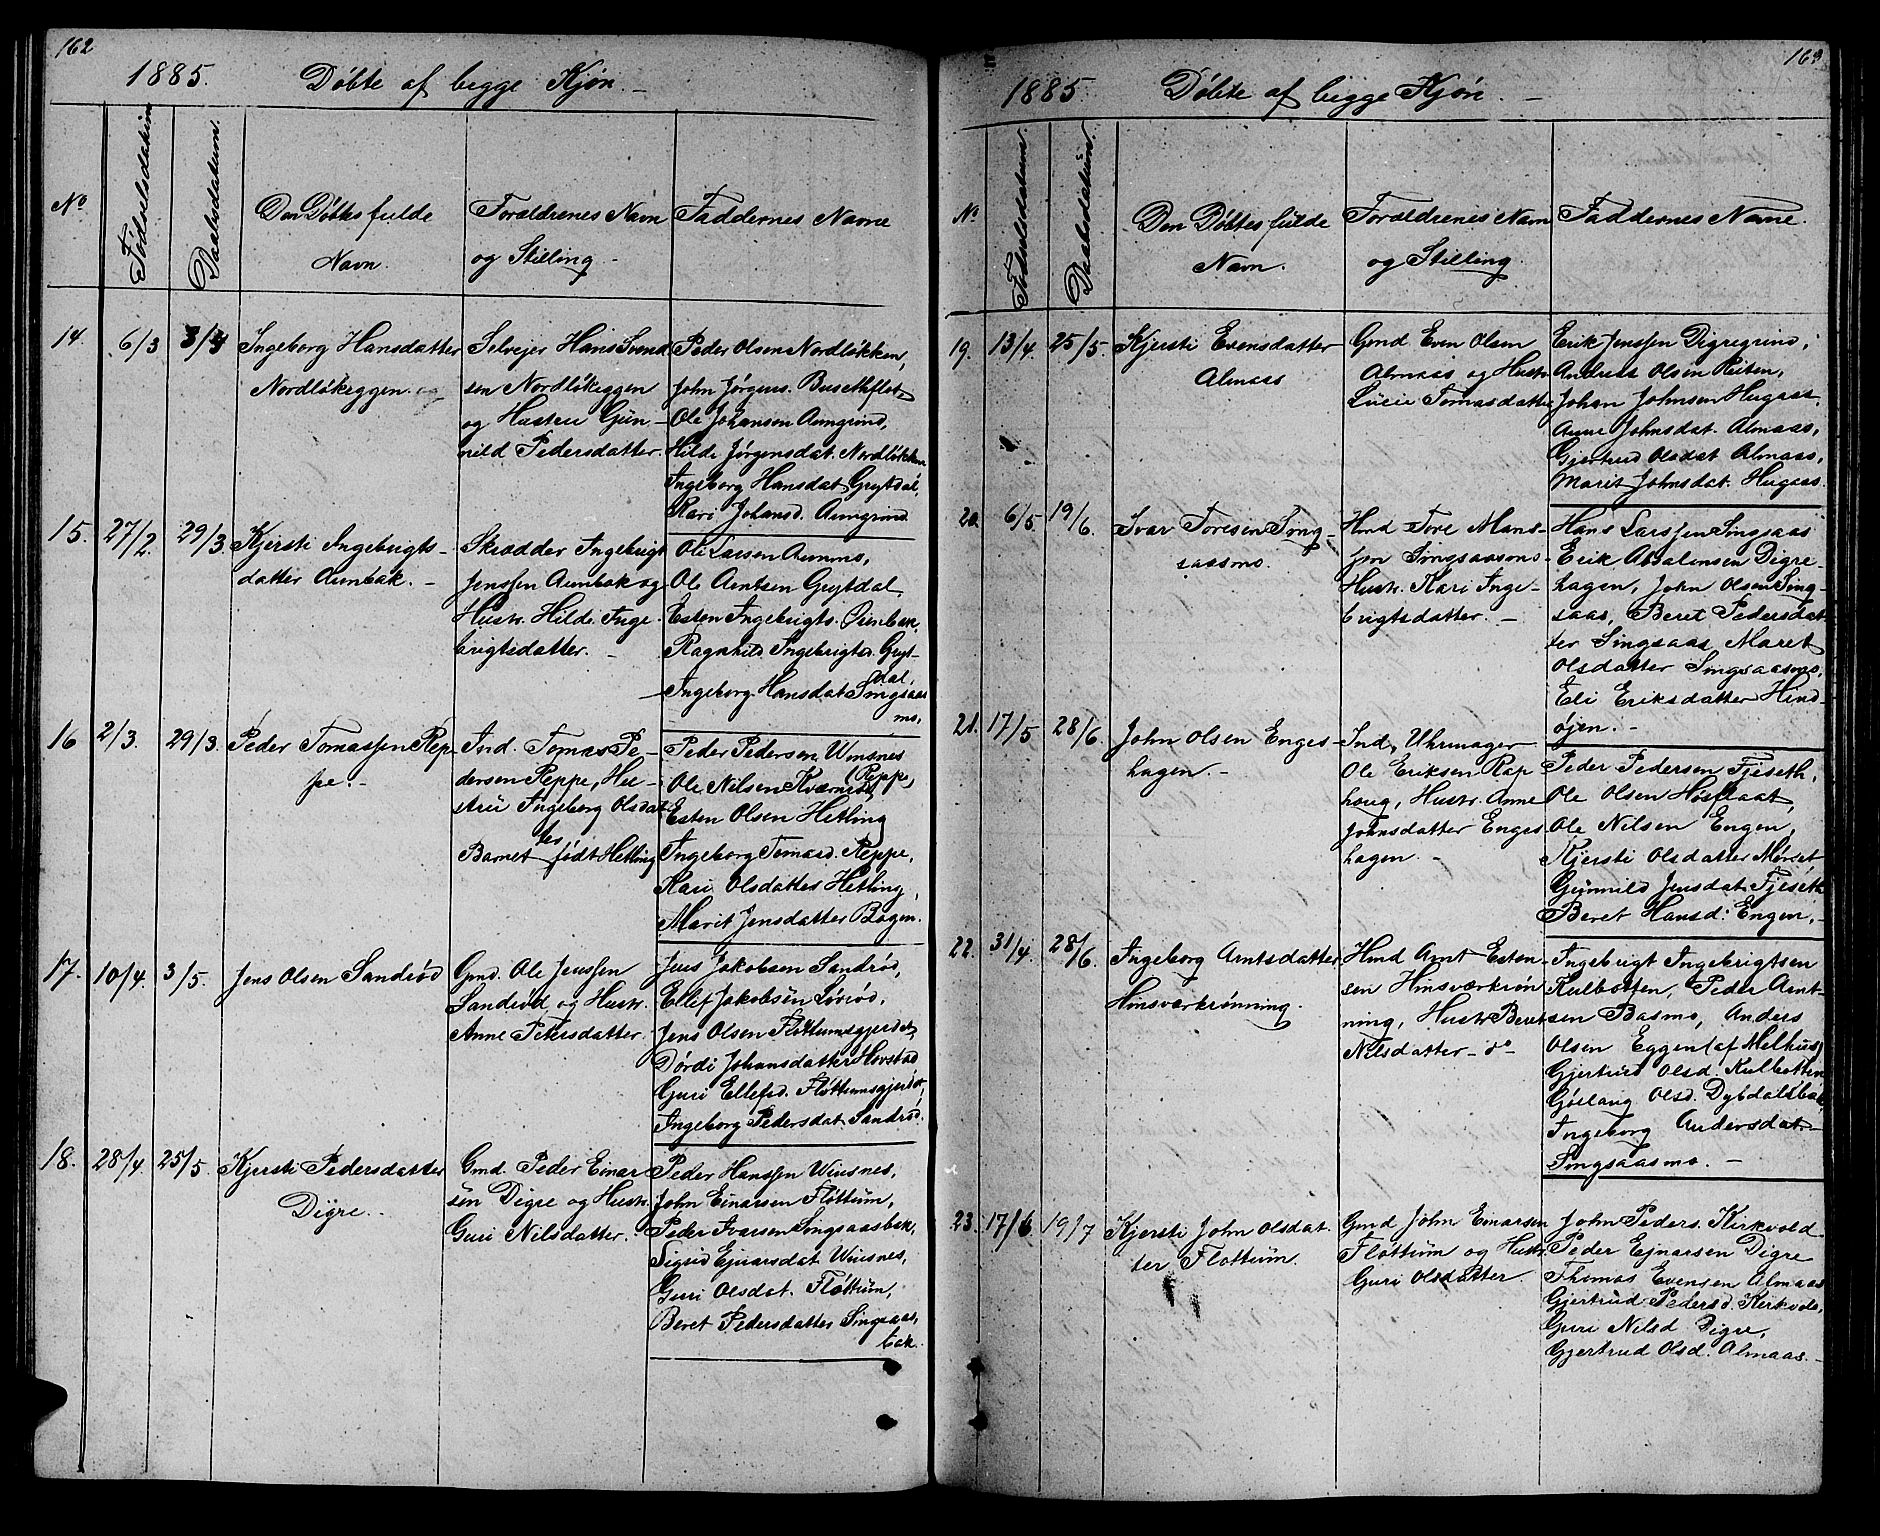 162
1885. Döbte af begge Kjøn. –
No
Fødselsdatum
Daabsdatum.
Den Döbtes fulde
Navn.
Forældrenes Navn
og Stilling –
Faddernes Navne
14. 6/3 3/4 Ingeborg Hansdatter
Nordløkeggen
Selvejer Hans Svend
sen Nordløkeggen
og Hustru Gun-
nild Pedersdatter.
Peder Olsen Nordløkken,
John Jörgens.
Ole Johansen Aungrind,
Hilde Jörgensdat. Nordløkken
Ingeborg Hansdat Grytdal,
Kari Johansd. Aungrind
15. 27/2 29/3 Kjersti Ingebrigts-
datter Aunbak. –
Skrædder Ingebrigt
Jenssen Aunbak og
Hustr. Hilde Inge
brigtsdatter. –
Ole Larsen Aunmo,
Ole Arntsen Grytdal,
Esten Ingebrigts. Aunbak,
Ragnhild Ingebrigtsd. Gryt-
dal,
Ingeborg Hansdat Singsaas
mo,
16 2/3. 29/3. Peder Tomassen Rep-
pe. –
Ind. Tomas Pe-
dersen Reppe, Hu-
stru Ingeborg Olsdat
ter
Barnet født Hetling
Peder Pedersen Winsnes
(Reppe,
Ole Nilsen Kværnes
Esten Olsen Hetling
Ingeborg Tomasd. Reppe,
Kari Olsdatter Hetling,
Marit Jensdatter Bogen.
17. 10/4. 3/5. Jens Olsen Sandrød
Gmd. Ole Jenssen
Sandrød og Hustr.
Anne Petersdatter.
Jens Jakobsen Sandrød,
Ellef Jakobsen Sørrød,
Jens Olsen Fløttumsgjerdet,
Dördi Johansdatter Hovstad
Guri Ellefsd. Fløttumsgjerdet,
Ingeborg Pedersdat Sandrød.
18. 28/4 25/5. Kjersti Pedersdatter
Digre. –
Gmd. Peder Einar
sen Digre og Hustr.
Guri Nilsdatter.
Peder Hanssen Winsnes,
John Einarsen Fløttum,
Peder Ivarsen Singsaasbak,
Sigrid Ejnarsdat Winsnes,
Guri Olsdat. Fløttum,
Beret Pedersdatter Singsaas,
bak.
163
1885 Döbte af begge Kjøn. –
No
Fødselsdatum.
Daabsdatum.
Den Döbtes fulde
Navn.
Forældrenes Navn
og Stilling.
Faddernes Navne.
19. 13/4. 25/5. Kjersti Evensdatter
Almaas
Gmd Even Olsen
Almaas og Hustr.
Lucie Tomasdatter
Erik Jenssen Digregrind,
Andreas Olsen Reiten,
Johan Johnsen Hugaas
Anne Johnsdat. Almaas,
Gjertrud Olsdat Almaas,
Marit Johnsdat. Hugaas.
20. 6/5 19/6. Ivar Toresen Sing-
saasmo.
Hmd Tore Mons-
sen Singsaasmo
Hustr. Kari Inge-
brigtsdatter. –
Hans Larssen Singsaas
Erik Absalonsen Digre-
hagen, John Olsen Sing-
saas, Beret Pedersdat
ter Singsaas Maret
Olsdatter Singsaasmo,
Eli Eriksdatter Hind-
øjen. –
21. 17/5 28/6. John Olsen Enges-
hagen. –
Ind, Uhrmager
Ole Eriksen Rap
houg, Hustr. Anne
Johnsdatter Enges
hagen. –
Peder Pedersen Fjeseth,
Ole Olsen Høsflaat,
Ole Nilsen Engen,
Kjersti Olsdatter Morset
Gunnild Jensdat Fjeseth
Beret Hansd. Engen, –
22. 31/4. 28/6. Ingeborg Arntsdatter
Hinsværkrønning.
Hmd Arnt Esten-
sen Hinsværkrøn
ning, Hustr Beret
Nilsdatter – do –
Ingebrigt Ingebrigtsen
Kulbotten, Peder Arnt-
sen Basmo, Anders
Olsen Eggen (af Melhus)
Gjertrud Olsd. Kulbotten
Goelaug Olsd. Dybdalsbak,
Ingeborg Andersdat–
Singsaasmo. –
23. 17/6 19/7 Kjersti John Olsdat
ter Fløttum.
Gmd John Einarsen
Fløttum og Hustr.
Guri Olsdatter
John Peders. Kirkvold
Peder Ejnarsen Digre
Thomas Evensen Almaas
Gjertrud Pedersd. Kirkvold,
Guri Nilsd Digre,
Gjertrud Olsd. Almaas. –